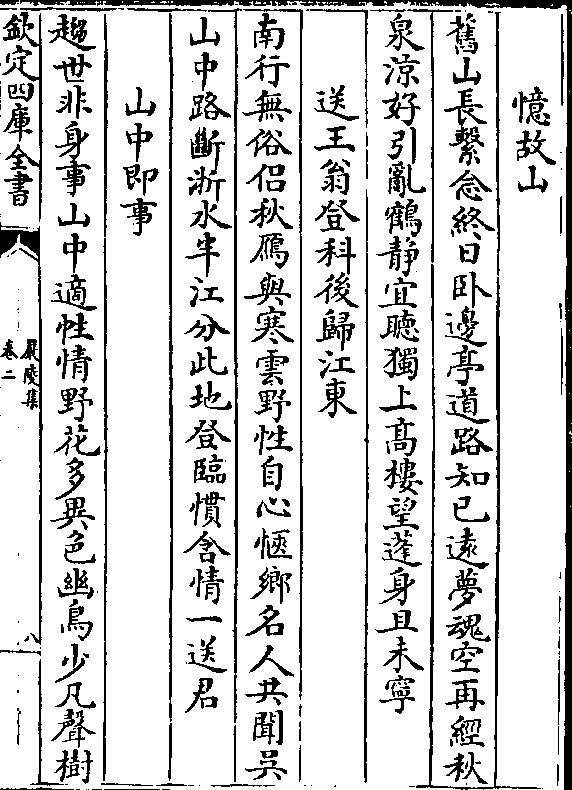 憶故山
舊山長繫念終日卧邊亭道路知已遠夢魂空再經秋
泉涼好引亂鶴靜宜聽獨上髙樓望蓬身且未寧
送王翁登科後歸江東
南行無俗侣秋鴈與寒雲野性自心愜鄉名人共聞吳
山中路斷浙水半江分此地登臨慣含情一送君
山中即事
趨世非身事山中適性情野花多異色幽鳥少凡聲樹
欽定四庫全書
嚴陵集
卷二
八